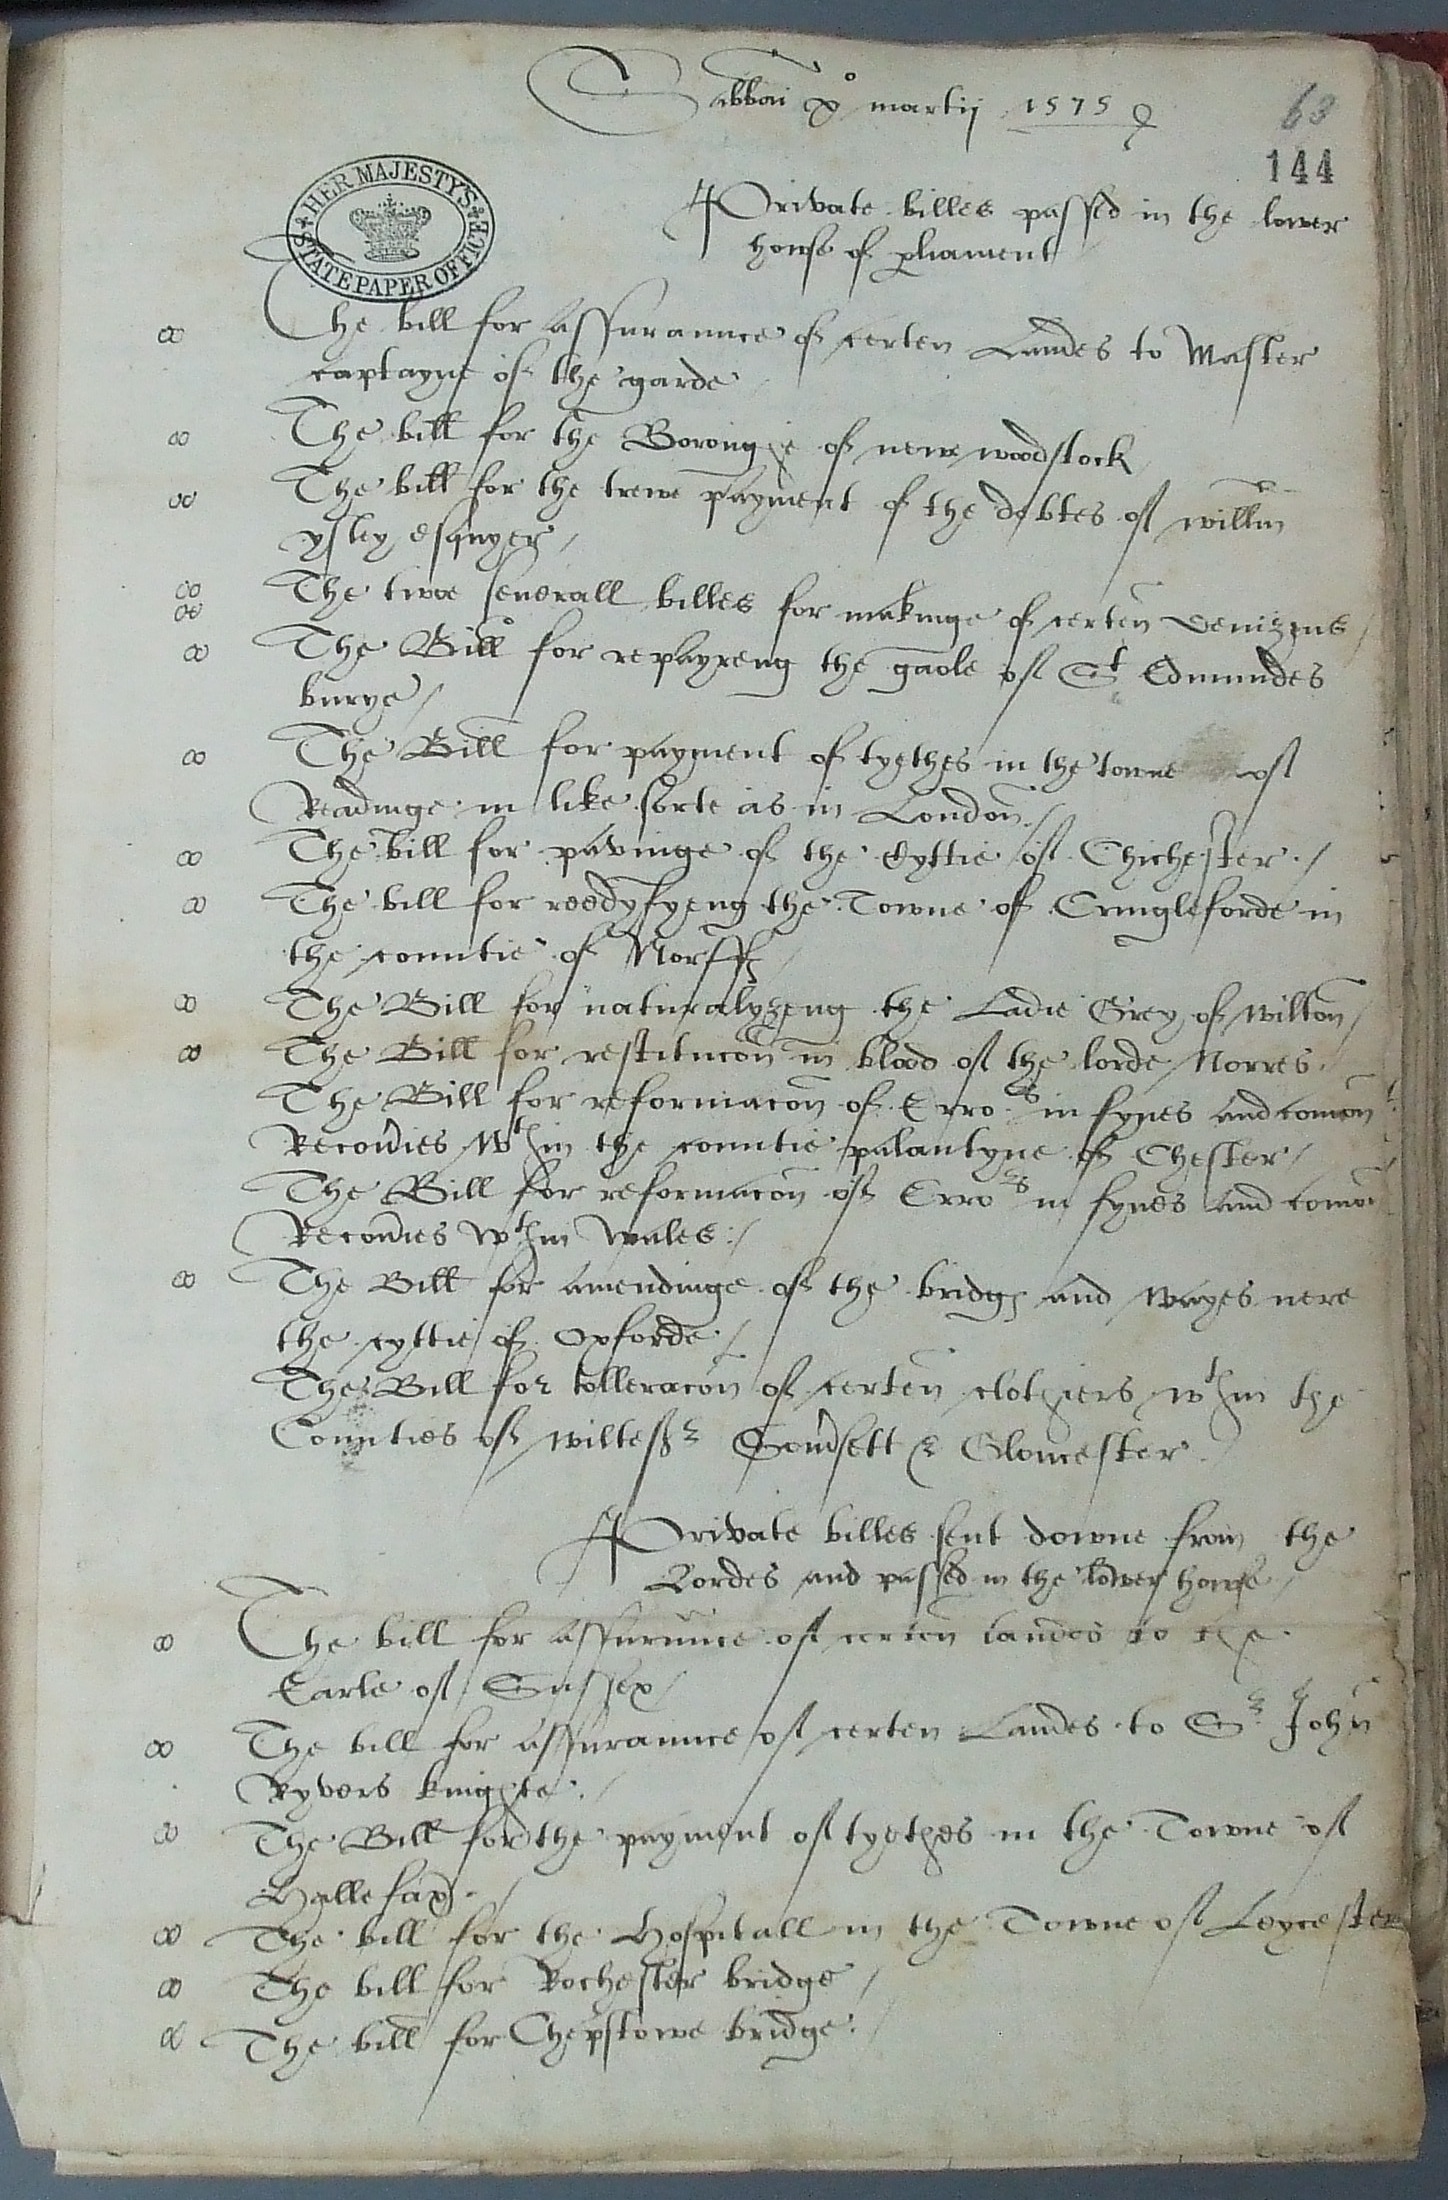 Sabbati x° martij 1575
63
144
HER MAJESTY'S STATE PAPER OFFICE
Private billes passed in the lower
howse of pliament
The bill for Assuraunce of certen Landes to Master
captayne of the garde
The bill for the Boroughe of newe woodstock
The bill for the trewe payment of the debtes of willm
ysley esquyer /
The twoe seuerall billes for makinge of certen denizens /
The Bill for repayreng the gaole of St Edmundes
burye /
The Bill for payment of tyethes in the towne of
Readinge in like sorte as in London /
The bill for pavinge of the Cyttie of Chichester /
The bill for reedyfyeng the Towne of Cringleforde in
the countie of Norff
The Bill for naturalyzeng the Ladie Grey of wilton /
The Bill for restitucon in blood of the lorde Norres
The Bill for reformacon of Erro rs in fynes and comon
Recoūies wth in the countie palantyne of Chester /
The Bill for reformacon of Erro rs in fynes and comon
Recoūies wthin wales /
The Bill for amendinge of the bridgs and wayes nere
the cyttie of Oxforde /
The Bill for tolleracon of certen clothiers wthin the
Counties of wiltesh Somsett & Glocester
Private billes sent downe from the
Lordes and passed in the lower howse /
The bill for assuraunce of certen landes to the
Earle of Sussex /
The bill for assuraunce of certen Landes to Sr John
Ryvers knighte /
The Bill for the payment of tyethes in the Towne of
Hallefax /
The bill for the Hospitall in the Towne of Leycester
The bill for Rochester bridge /
The bill for Chepstowe bridge /